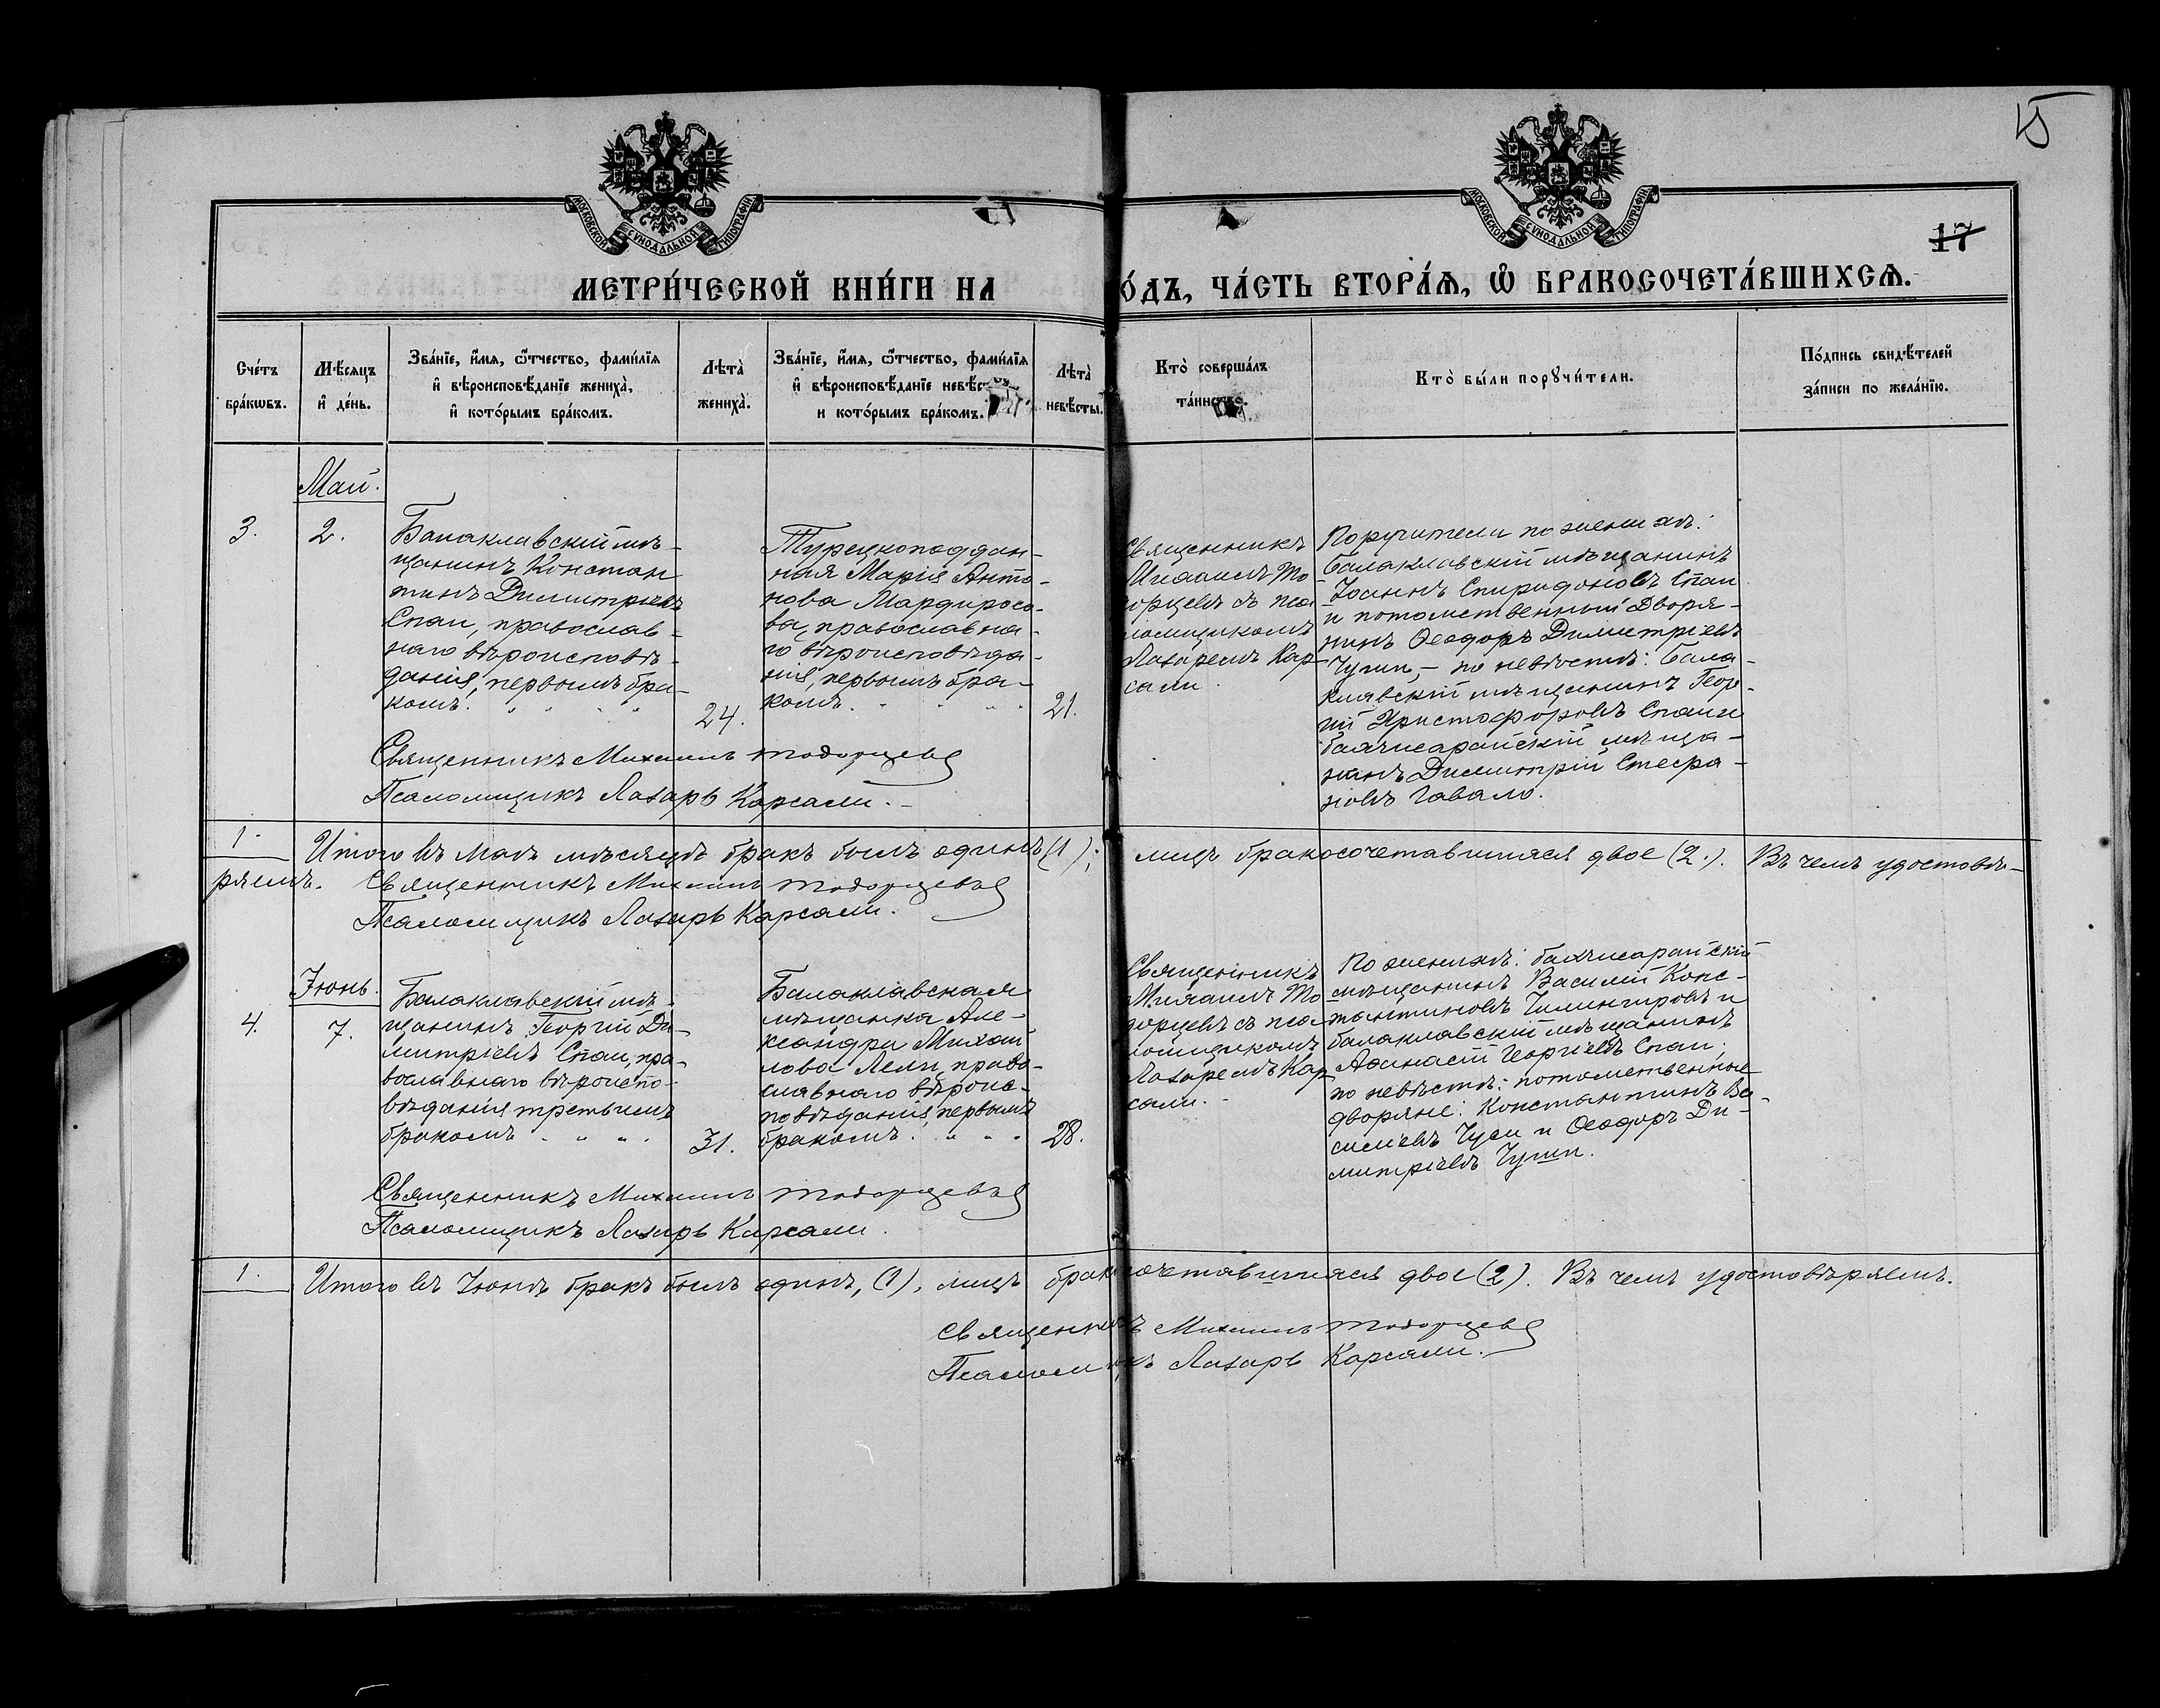 15
МОСКОВСКОЙ СУНОДАЛЬНОЙ ТИПОГРАФІИ
МОСКОВСКОЙ СУНОДАЛЬНОЙ ТИПОГРАФІИ
17
МЕТРИ́ЧЕСКОЙ КНИ́ГИ НА
О́ДЪ, ЧА́СТЬ ВТОРА́Я, Ѡ҆ БРАКОСОЧЕТА́ВШИХСЯ.
Сче́тъ
бра́кωвъ.
Мѣ́сяцъ
и҆ де́нь.
Зва́нїе, и҆́мя, ѻ҆́тчество, фами́лїя
и҆ вѣроисповѣ́данїе жениха̀,
и҆ кото́рымъ бра́комъ.
Лѣта̀
жениха̀.
Зва́нїе, и҆́мя, ѻ҆́тчество, фами́лїя
и҆ вѣроисповѣ́данїе невѣс
и кото́рымъ бра́комъ.
Лѣта̀
невѣ́сты.
Кто̀ соверша́лъ
та́инство.
Кто̀ бы́ли порꙋчи́тели.
По́дпись свидѣ́телей
за́писи по жела́нїю.
Май.
3.
2.
Балаклавскій мѣ-
щанинъ Констан
тинъ Димитріевъ
Спаи, православ-
наго вѣроисповѣ-
данія, первымъ бра-
комъ.
24.
Турецкоподдан-
ная Марія Анто-
нова Мардиросо-
ва, православна-
го вѣроисповѣда-
нія, первымъ бра-
комъ.
21.
Священникъ
Михаилъ То
дорцевъ съ пса
ломщикомъ
Лазаремъ Кар-
сали.
Поручители по женихѣ:
балаклавскій мѣщанинъ
Іоаннъ Спиридоновъ Спаи
и потомственный дворя-
нинъ Ѳеодоръ Димитріевъ
Чупи, - по невѣстѣ: бала-
клавскій мѣщанинъ Геор-
гій Христофоровъ Спаи и
бахчисарайскій мѣща-
нинъ Димитрій Стефа-
новъ Гавало.
Священникъ Михаилъ Тодорцевъ
Псаломщикъ Лазарь Карсали.-
1
Итого въ маѣ мѣсяцѣ бракъ былъ одинъ (1); лицъ бракосочетавшихся двое (2.). Въ чемъ удостовѣ-
ряемъ. Священникъ Михаилъ Тодорцевъ
Псаломщикъ Лазарь Карсали.
Іюнь.
4.
7.
Балаклавскій мѣ-
щанинъ Георгій Ди-
митріевъ Спаи, пра-
вославнаго вѣроиспо-
вѣданія третьимъ
бракомъ
31.
Балаклавская
мѣщанка Але-
ксандра Михай
лова Лели, право-
славнаго вѣроис-
повѣданія, первымъ
бракомъ.
28.
Священникъ
Михаилъ То
дорцевъ съ пса-
ломщикомъ
Лазаремъ Кар
сали.-
По женихѣ: бахчисарайскій
мѣщанинъ Василій Конс-
тантиновъ Чилингировъ и
балаклавскій мѣщанинъ
Аѳанасій Георгіевъ Спаи,
по невѣстѣ: потомственные
дворяне: Константинъ Ва-
сильевъ Чуси и Ѳеодоръ Ди-
митріевъ Чупи.
Священникъ Михаилъ Тодорцевъ
Псаломщикъ Лазарь Карсали.
1.
Итого въ Іюнѣ бракъ былъ одинъ, (1), лицъ бракосочетавшихся двое (2). Въ чемъ удостовѣряемъ.
Священникъ Михаилъ Тодорцевъ
Псаломщикъ Лазарь Карсали.